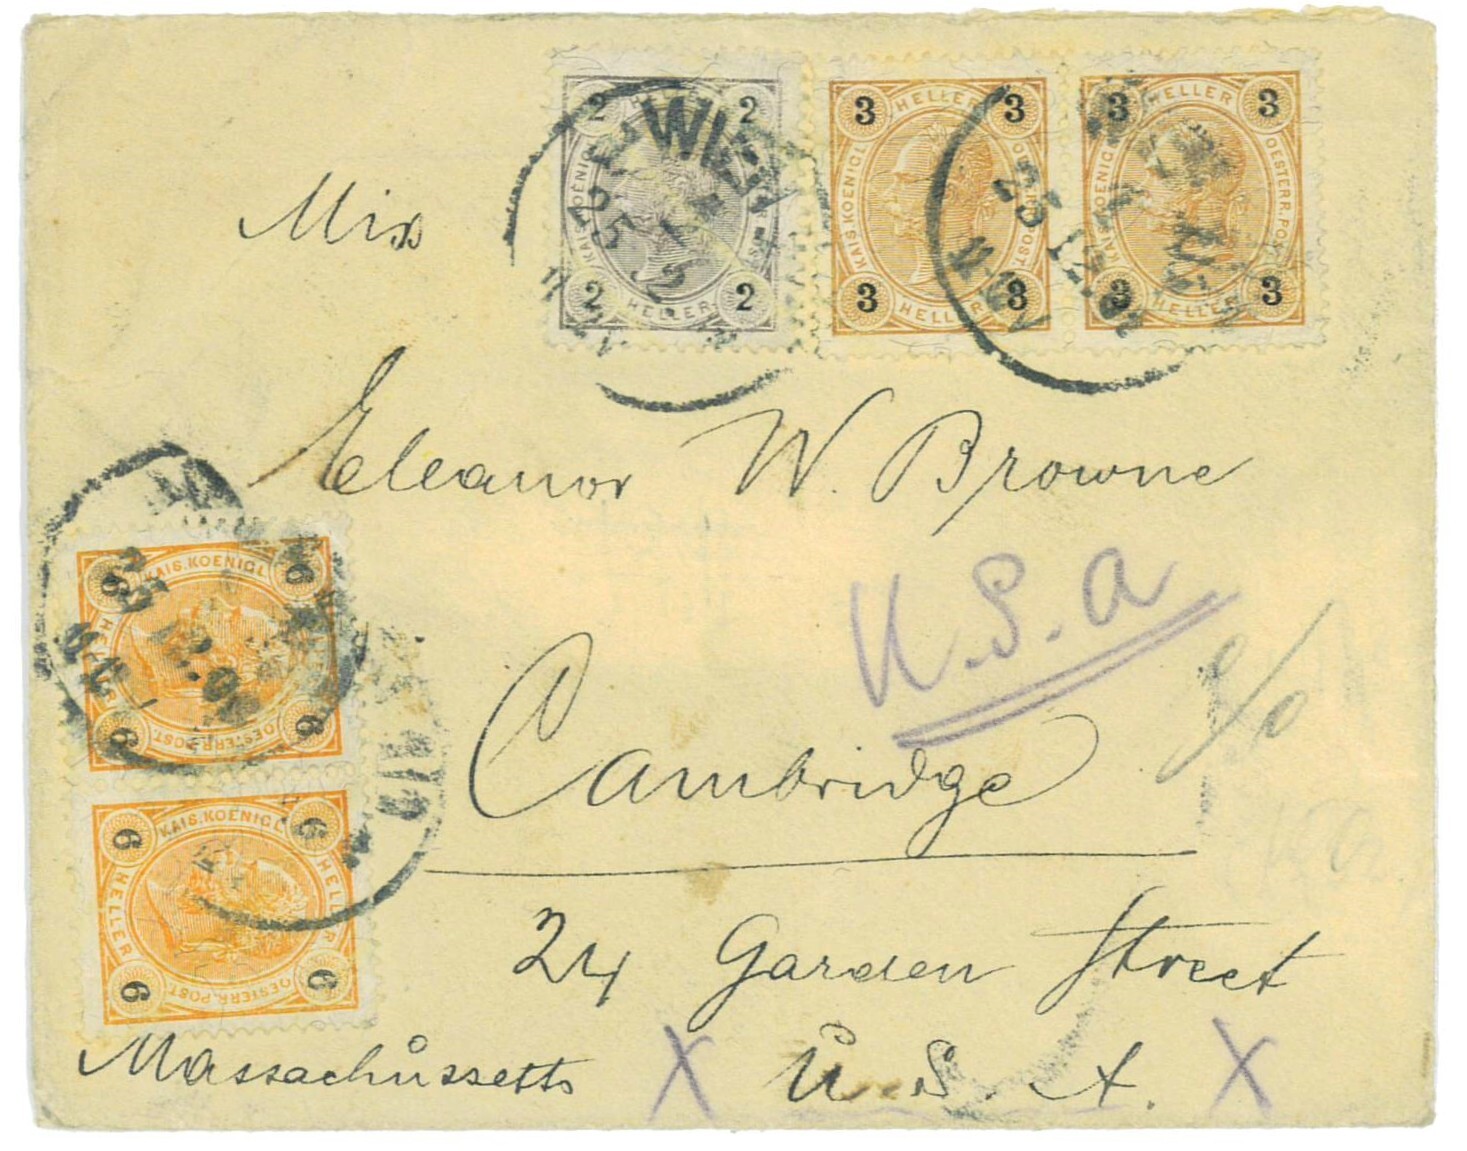 2 HELLER 2
KAIS. KOENIGL.
2 HELLER 2
3 HELLER 3
KAIS. KOENIGL. OESTERR. POST.
3 HELLER 3
3 HELLER 3
KAIS. KOENIGL. OESTERR. POST.
3 HELLER 3
WIEN
25 12
25 12
Mix
Eleanor W. Browne
U.S.A
Cambridge
6 KAIS. KOENIGL. 6
HELLER
6 OESTERR. POST. 6
12.0
6 KAIS. KOENIGL. 6
HELLER HELLER
6 OESTERR. POST. 6
24 Garden Street
Massachůssetts X Ů. S. A. X